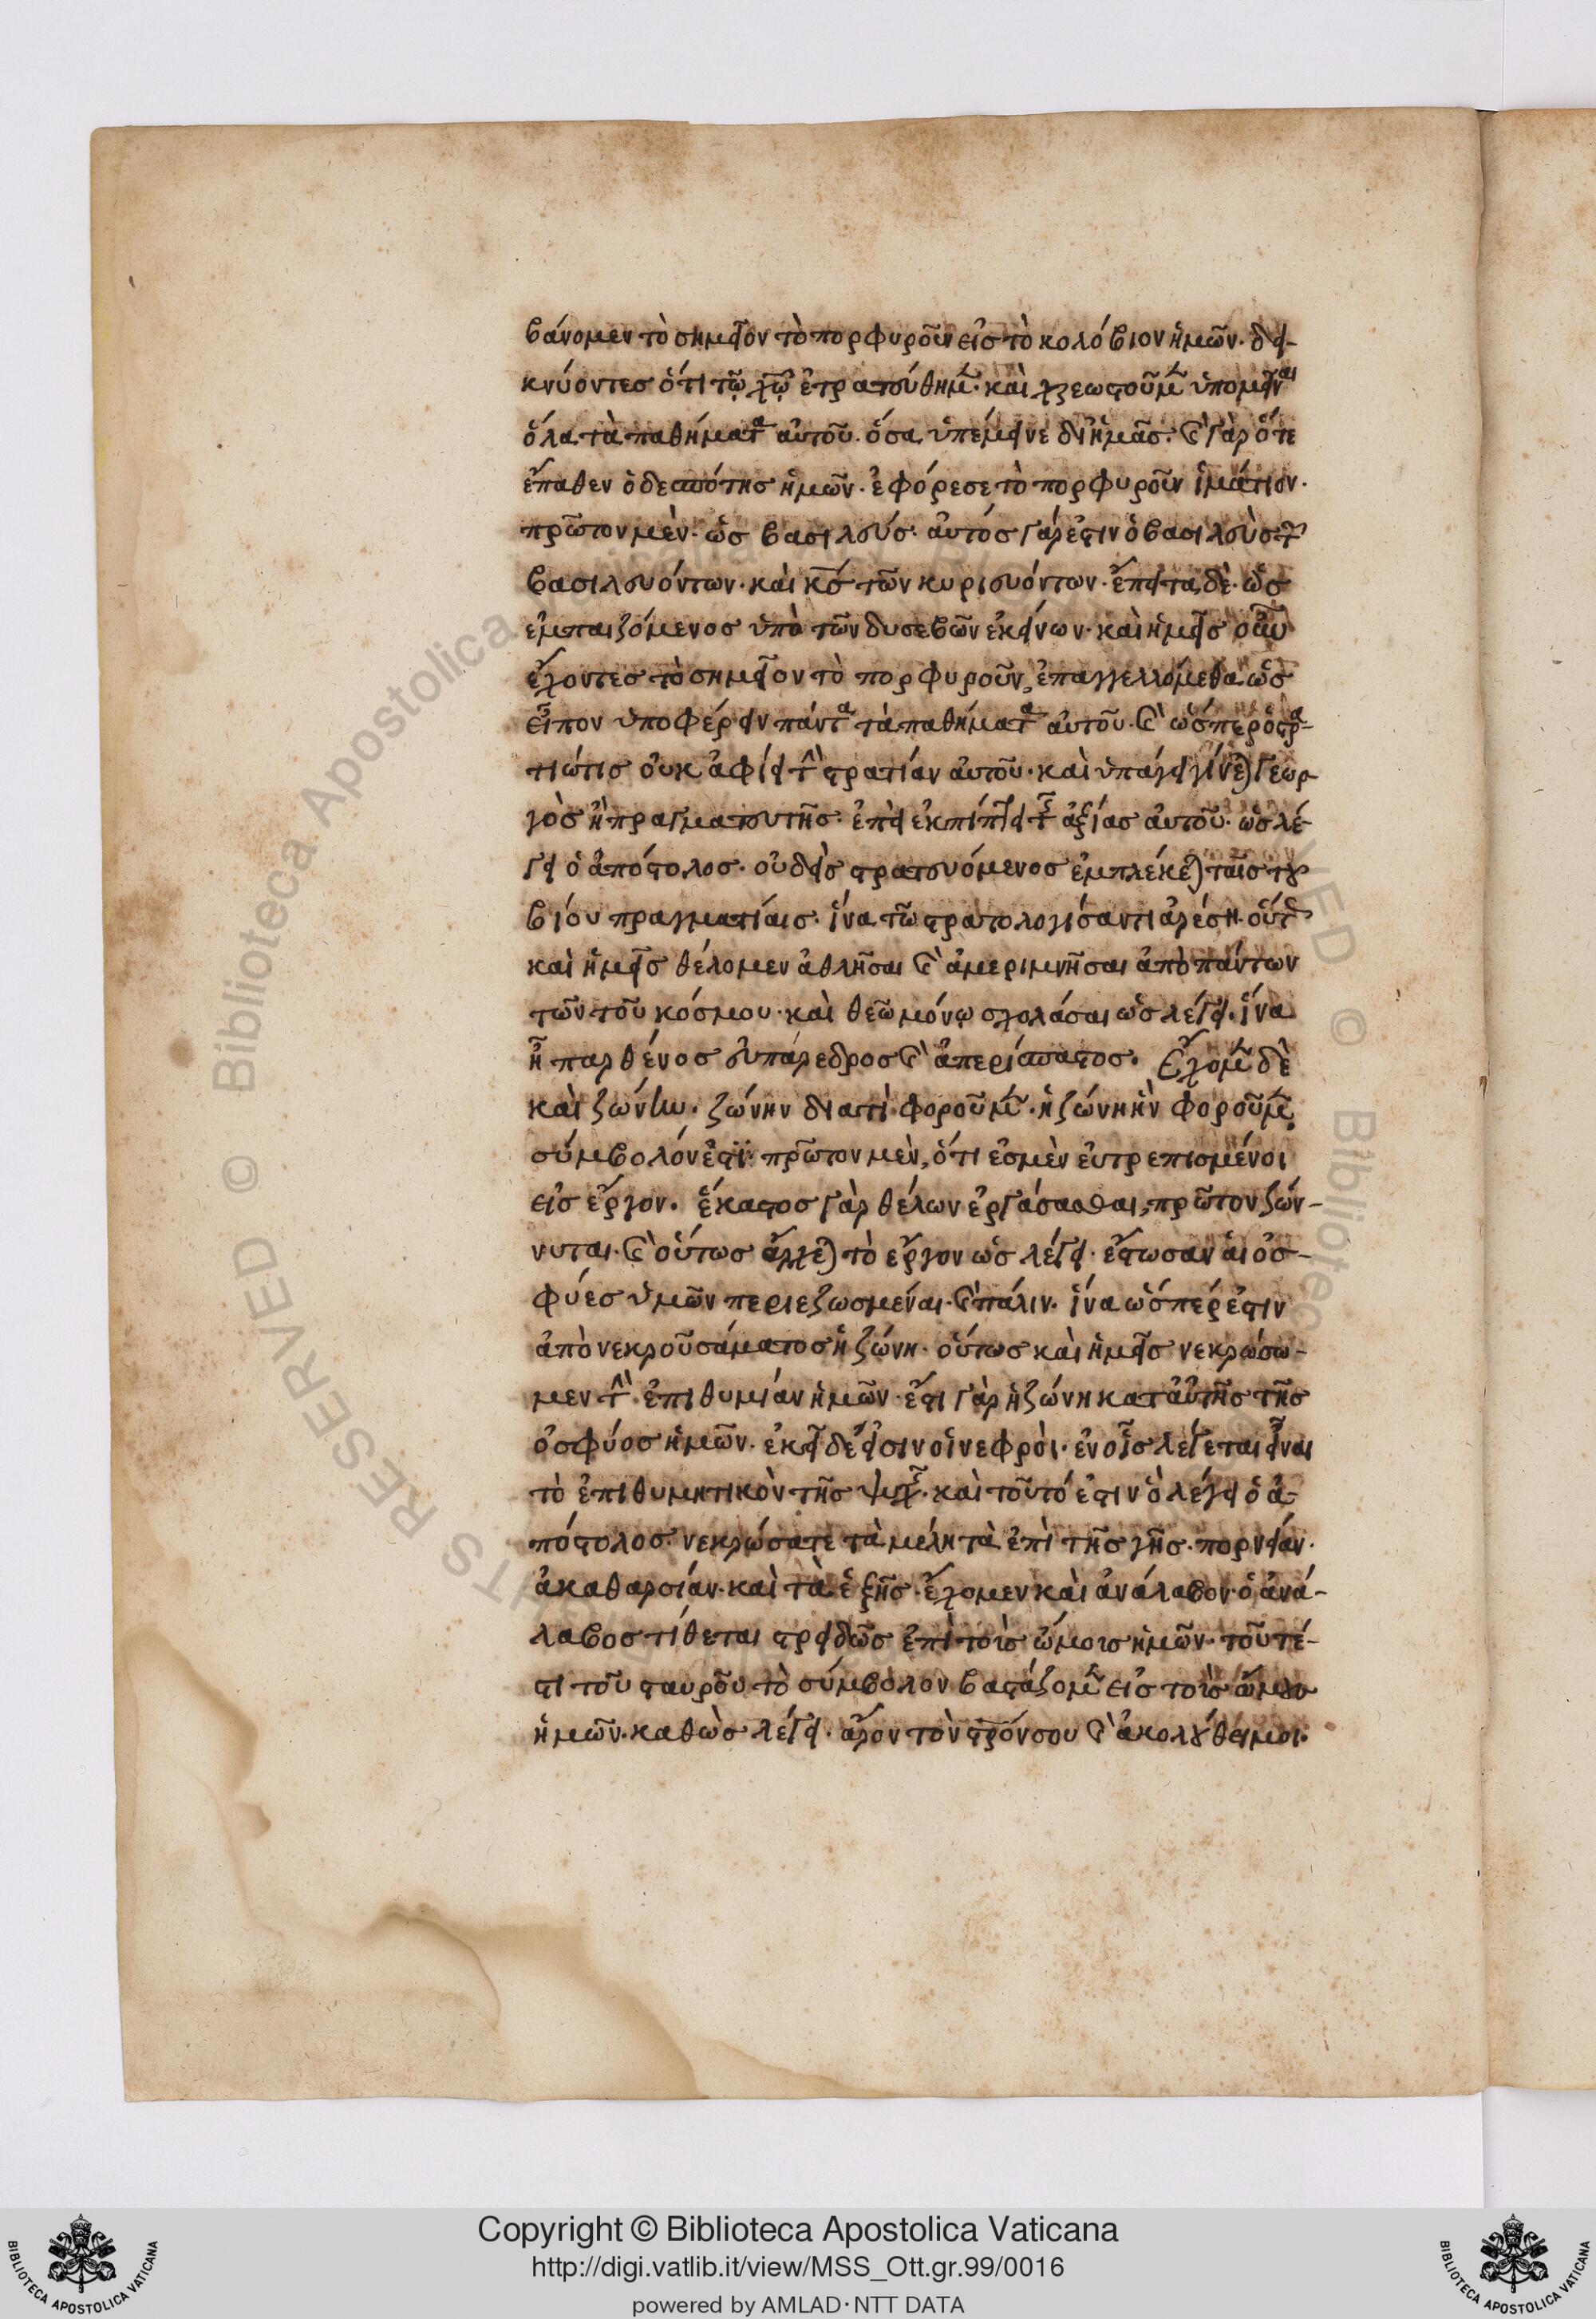 βάνομεν τὸ σημεῖον τὸ πορφυροῦν εἰς τὸ κολόβιον ἡμῶν· δει-
κνύοντες ὅτι τῷ χῷ ἐστρατεύθημ· καὶ χρεωστοῦμ ὑπομεῖναι
ὅλα τὰ παθήματα αὐτοῦ· ὅσα ὑπέμεινε δι' ἡμᾶς· καὶ γὰρ ὅτε
ἔπαθεν ὁ δεσπότης ἡμῶν· ἐφόρεσε τὸ πορφυροῦν ἱμάτιον·
πρῶτον μὲν· ὡς βασιλεύς· αὐτός γάρ ἐστιν ὁ βασιλεὺς τῶν
βασιλευόντων· καὶ κς τῶν κυριευόντων· ἔπειτα δὲ· ὡς
ἐμπαιζόμενος ὑπὸ τῶν δυσεβῶν ἐκείνων· καὶ ἡμεῖς
ἔχοντες τὸ σημεῖον τὸ πορφυροῦν, ἐπαγγελλόμεθα ὡς
εἶπον ὑποφέρειν πάντα τὰ παθήματα αὐτοῦ· καὶ ὥσπερ ὁ στρα-
τιώτις οὐκ ἀφίει τὴν στρατίαν αὐτοῦ· καὶ ὑπάγει γίνεται γεωρ-
γὸς ἢ πραγματευτῆς· ἐπεὶ ἐκπίπτει τῆς ἀξίας αὐτοῦ· ὡς λέ-
γει ὁ ἀπόστολος· οὐδεὶς στρατευόμενος ἐμπλέκεται ταῖς τοῦ
βίου πραγματίαις· ἵνα τῶ στρατολογίσαντι ἀρέση· οὕτως
καὶ ἡμεῖς θέλομεν ἀθλῆσαι καὶ ἀμεριμνῆσαι ἀπὸ πάντων
τῶν τοῦ κόσμου· καὶ θεῶ μόνῳ σχολάσαι ὡς λέγει· ἵνα
ἦ παρθένος εὐπάρεδρος καὶ ἀπερίσπαστος. Ἔχομ δὲ
καὶ ζώνην· ζώνην διατί φοροῦμεν· ἡ ζώνη ἣν φοροῦμεν
σύμβολόν ἐστι· πρῶτον μὲν, ὅτι ἐσμὲν εὐτρεπισμένοι
εἰς ἔργον. ἕκαστος γὰρ θέλων ἐργάσασθαι, πρῶτον ζών-
νυται· καὶ οὕτως ἄρχεται τὸ ἔργον ὡς λέγει· ἔστωσαν αἱ ὀσ-
φύες ὑμῶν περιεζωσμέναι· καὶ πάλιν· ἵνα ὥσπέρ ἐστιν
ἀπὸ νεκροῦ σάματος ἡ ζώνη· οὕτως καὶ ἡμεῖς νεκρώσω-
μεν τὴν ἐπιθυμίαν ἡμῶν· ἔστι γὰρ ἡ ζώνη κατ' αὐτῆς τῆς
ὀσφύος ἡμῶν· ἐκεῖ δέ εἰσιν οἱ νεφροί· ἐν οἷς λέγεται εἶναι
τὸ ἐπιθυμητικὸν τῆς ψυχῆς· καὶ τοῦτό ἐστιν ὃ λέγει ὁ ἀ-
πόστολος· νεκρώσατε τὰ μέλη τὰ ἐπὶ τῆς γῆς· πορνείαν·
ἀκαθαρσίαν· καὶ τὰ ἑξῆς· ἔχομεν καὶ ἀνάλαβον· ὁ ἀνά-
λαβος τίθεται στρειδῶς ἐπὶ τοὶς ὤμοις ἡμῶν· τοῦτέ-
στι τοῦ σταυροῦ τὸ σύμβολον βαστάζομεν εἰς τοὶς ὤμους
ἡμῶν· καθὼς λέγει· ἆρον τὸν στρόν σου καὶ ἀκολούθει μοι·
Copyright © Biblioteca Apostolica Vaticana
http://digi.vatlib.it/view/MSS_Ott.gr.99/0016
powered by AMLAD·NTT DATA